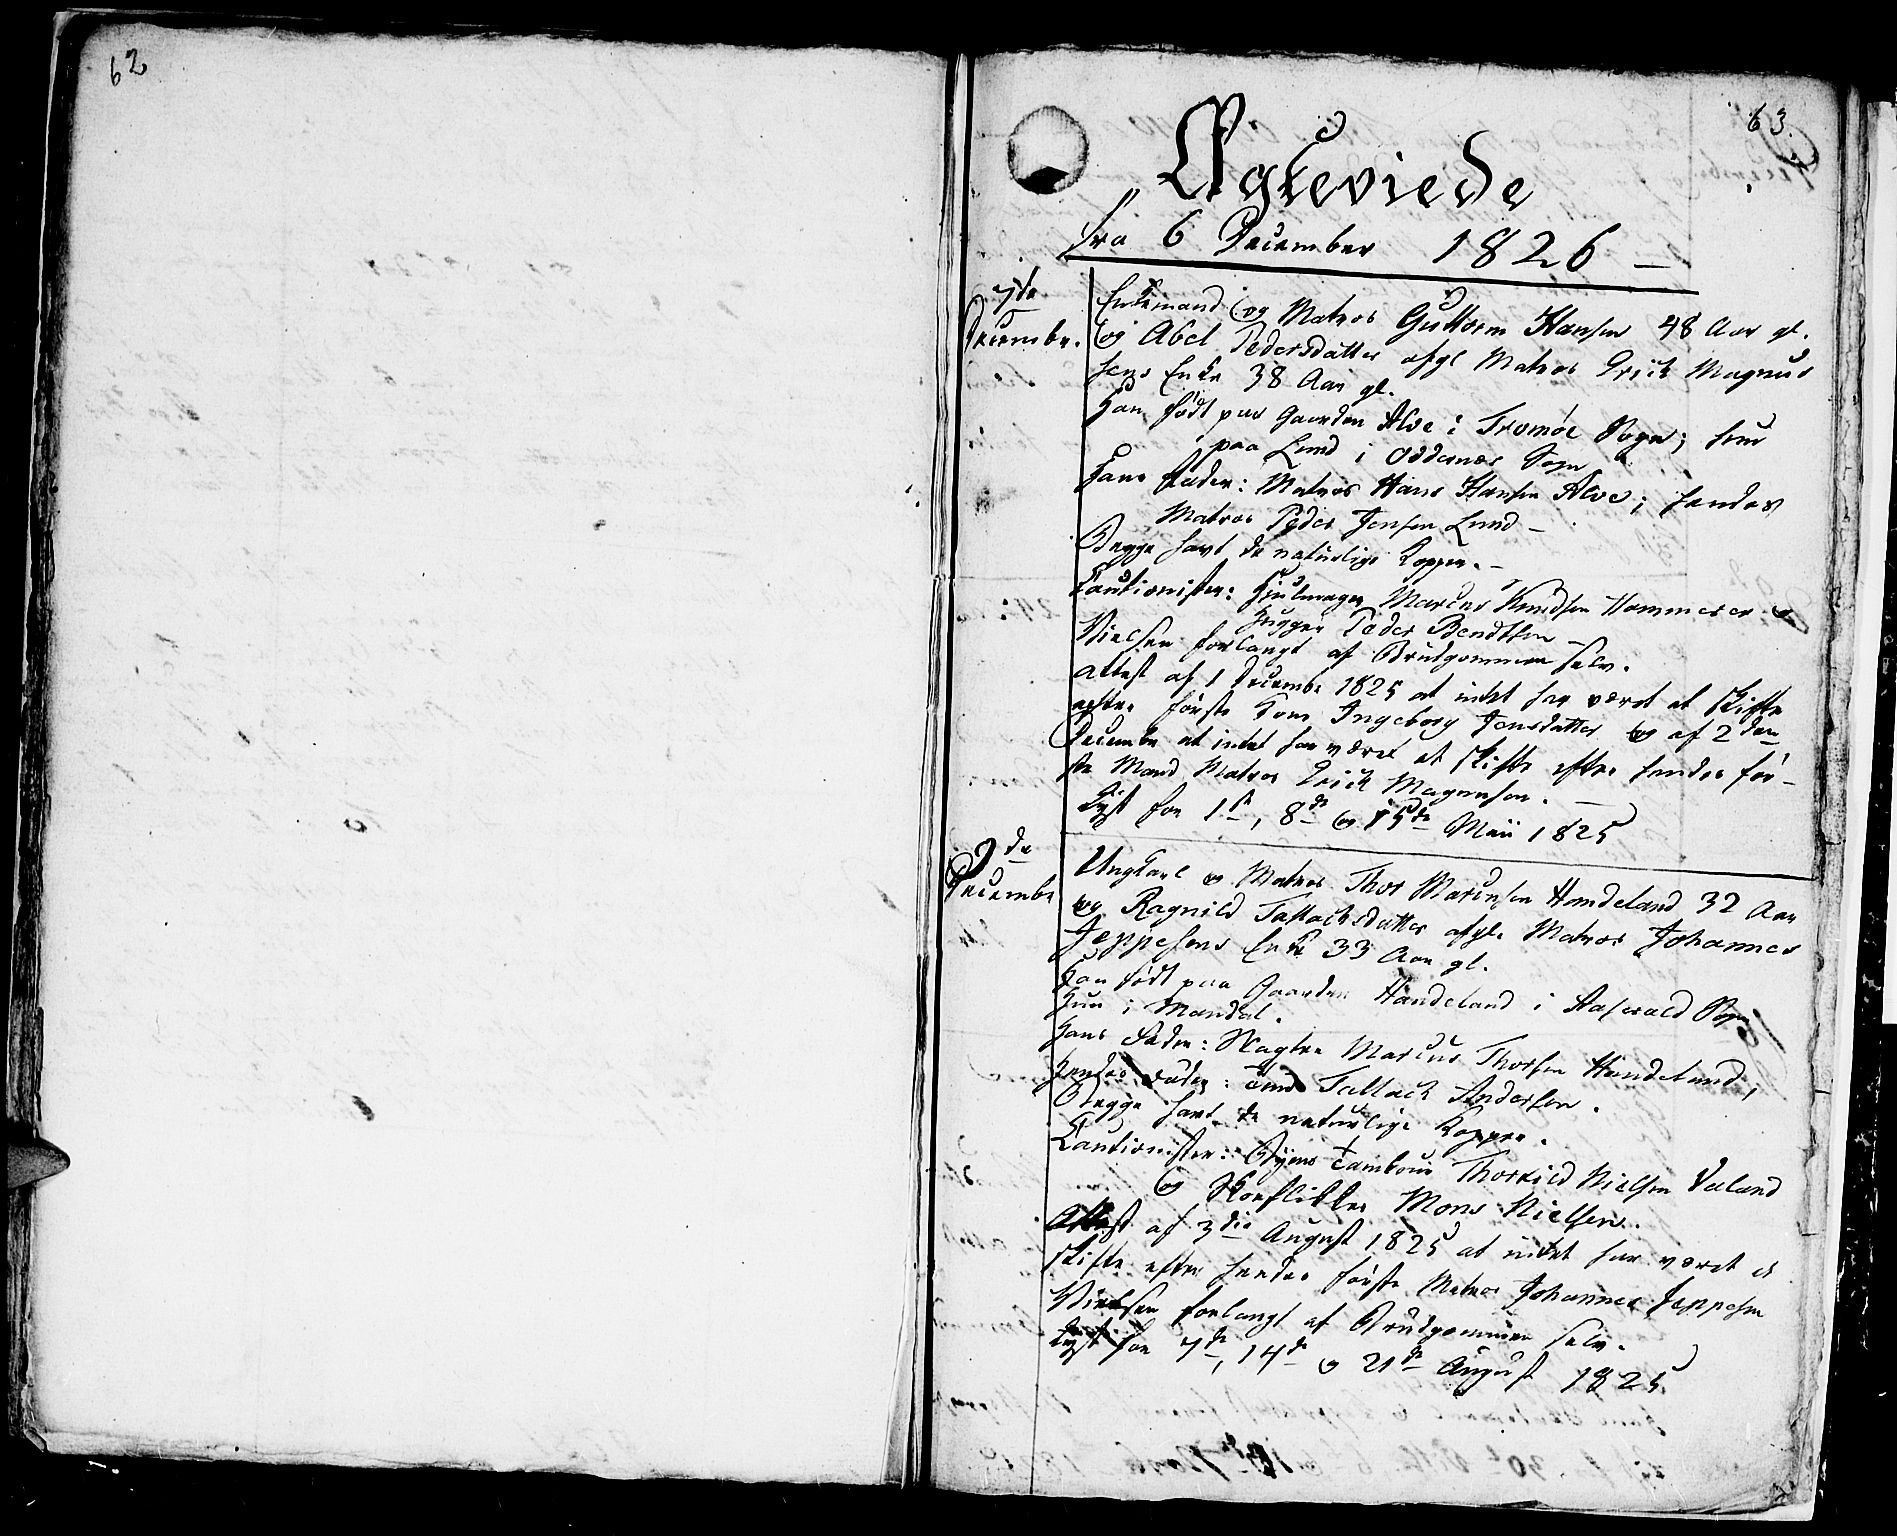 62
63.
Ægteviede
fra 6 December 1826 –
7de
Decembr.
Enkemand og Matros Guttorm Hansen 48 Aar gl.
og Abel Pedersdatter afgl Matros Erick Magnus
sens Enke 38 Aar gl.
Han født paa Gaarden Alve i Tromøe Sogn; hun
paa Lund i Oddernæs Sogn
Hans Fader: Matros Hans Hansen Alve; hendes
Matros Peder Jensen Lund –
Begge havt de naturlige Kopper. –
Cautionister: Hjulmager Marcus Knudsen Hammeren og
Peder Bendtsen –
Vielsen forlangt af Brudgommen selv.
Attest af 1 Decembr 1825 at intet har været at Skifte
efter første Kone Ingeborg Jensdatter og af 2den
Decembr at intet har været at Skifte efter hendes før-
ste Mand Matros Erick Magnusen. –
Lyst for 1ste, 8de og 15de Mai 1825
9de
Decembr
Ungkarl og Matros Thor Marcusen Handeland 32 Aar
og Ragnild Tallacksdatter afgl. Matros Johannes
Jeppesens Enke 33 Aar gl.
Han født paa Gaarden Handeland i Sogn
Hun i Mandal.
Hans Fader: Marcus Thorsen Handeland,
Hendes Fader: Tallack Andersen.
Begge havt de naturlige Kopper.
Cautionister: Byens Tambour Thorkild Nielsen Valand
og Skoeflikker Mons Nielsen.
Attest af 3die August 1825 at intet har været at
skifte efter hendes første Matros Johannes Jeppesen
Vielsen forlangt af Brudgommen selv.
Lyst for 7de, 14de og 21de August 1825